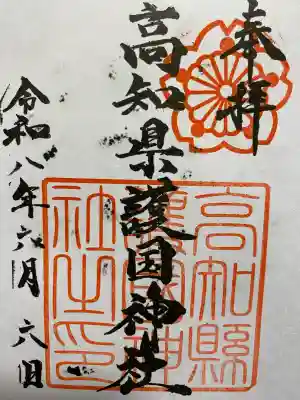 奉拝
高知県護国神社
令和八年六月六日
高知縣
護國神
社之印